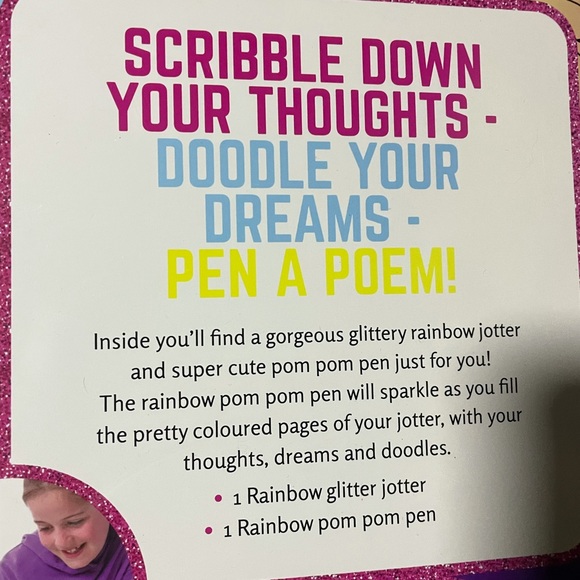 SCRIBBLE DOWN
YOUR THOUGHTS -
DOODLE YOUR
DREAMS -
PEN A POEM!
Inside you'll find a gorgeous glittery rainbow jotter
and super cute pom pom pen just for you!
The rainbow pom pom pen will sparkle as you fill
the pretty coloured pages of your jotter, with your
thoughts, dreams and doodles.
• 1 Rainbow glitter jotter
• 1 Rainbow pom pom pen